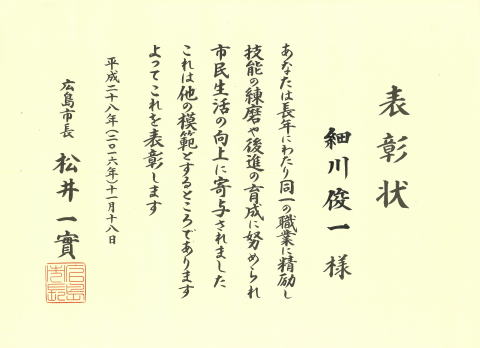 表彰状
細川俊一様
あなたは長年にわたり同一の職業に精励し
技能の練磨や後進の育成に努められ
市民生活の向上に寄与されました
これは他の模範とするところであります
よってこれを表彰します
平成二十八年(二〇一六年)十一月十八日
広島市長 松井一實